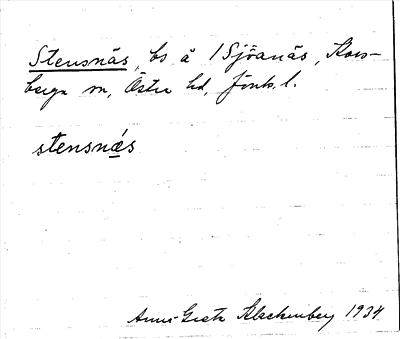 Stensnäs, bs å 1 Sjöanäs, Kors-
berga sn, Östra hd, Jönk. l.
stensnǽs
Anna-Greta 1934